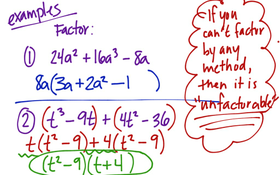 examples
Factor:
① 24a² + 16a³ - 8a
8a(3a + 2a² - 1)
② (t³ - 9t) + (4t² - 36)
t(t² - 9) + 4(t² - 9)
(t² - 9)(t + 4)
If you
can't factor
by any
method,
then it is
"unfactorable"